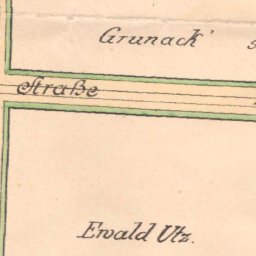 Grunack'
Straße
Ewald Utz.